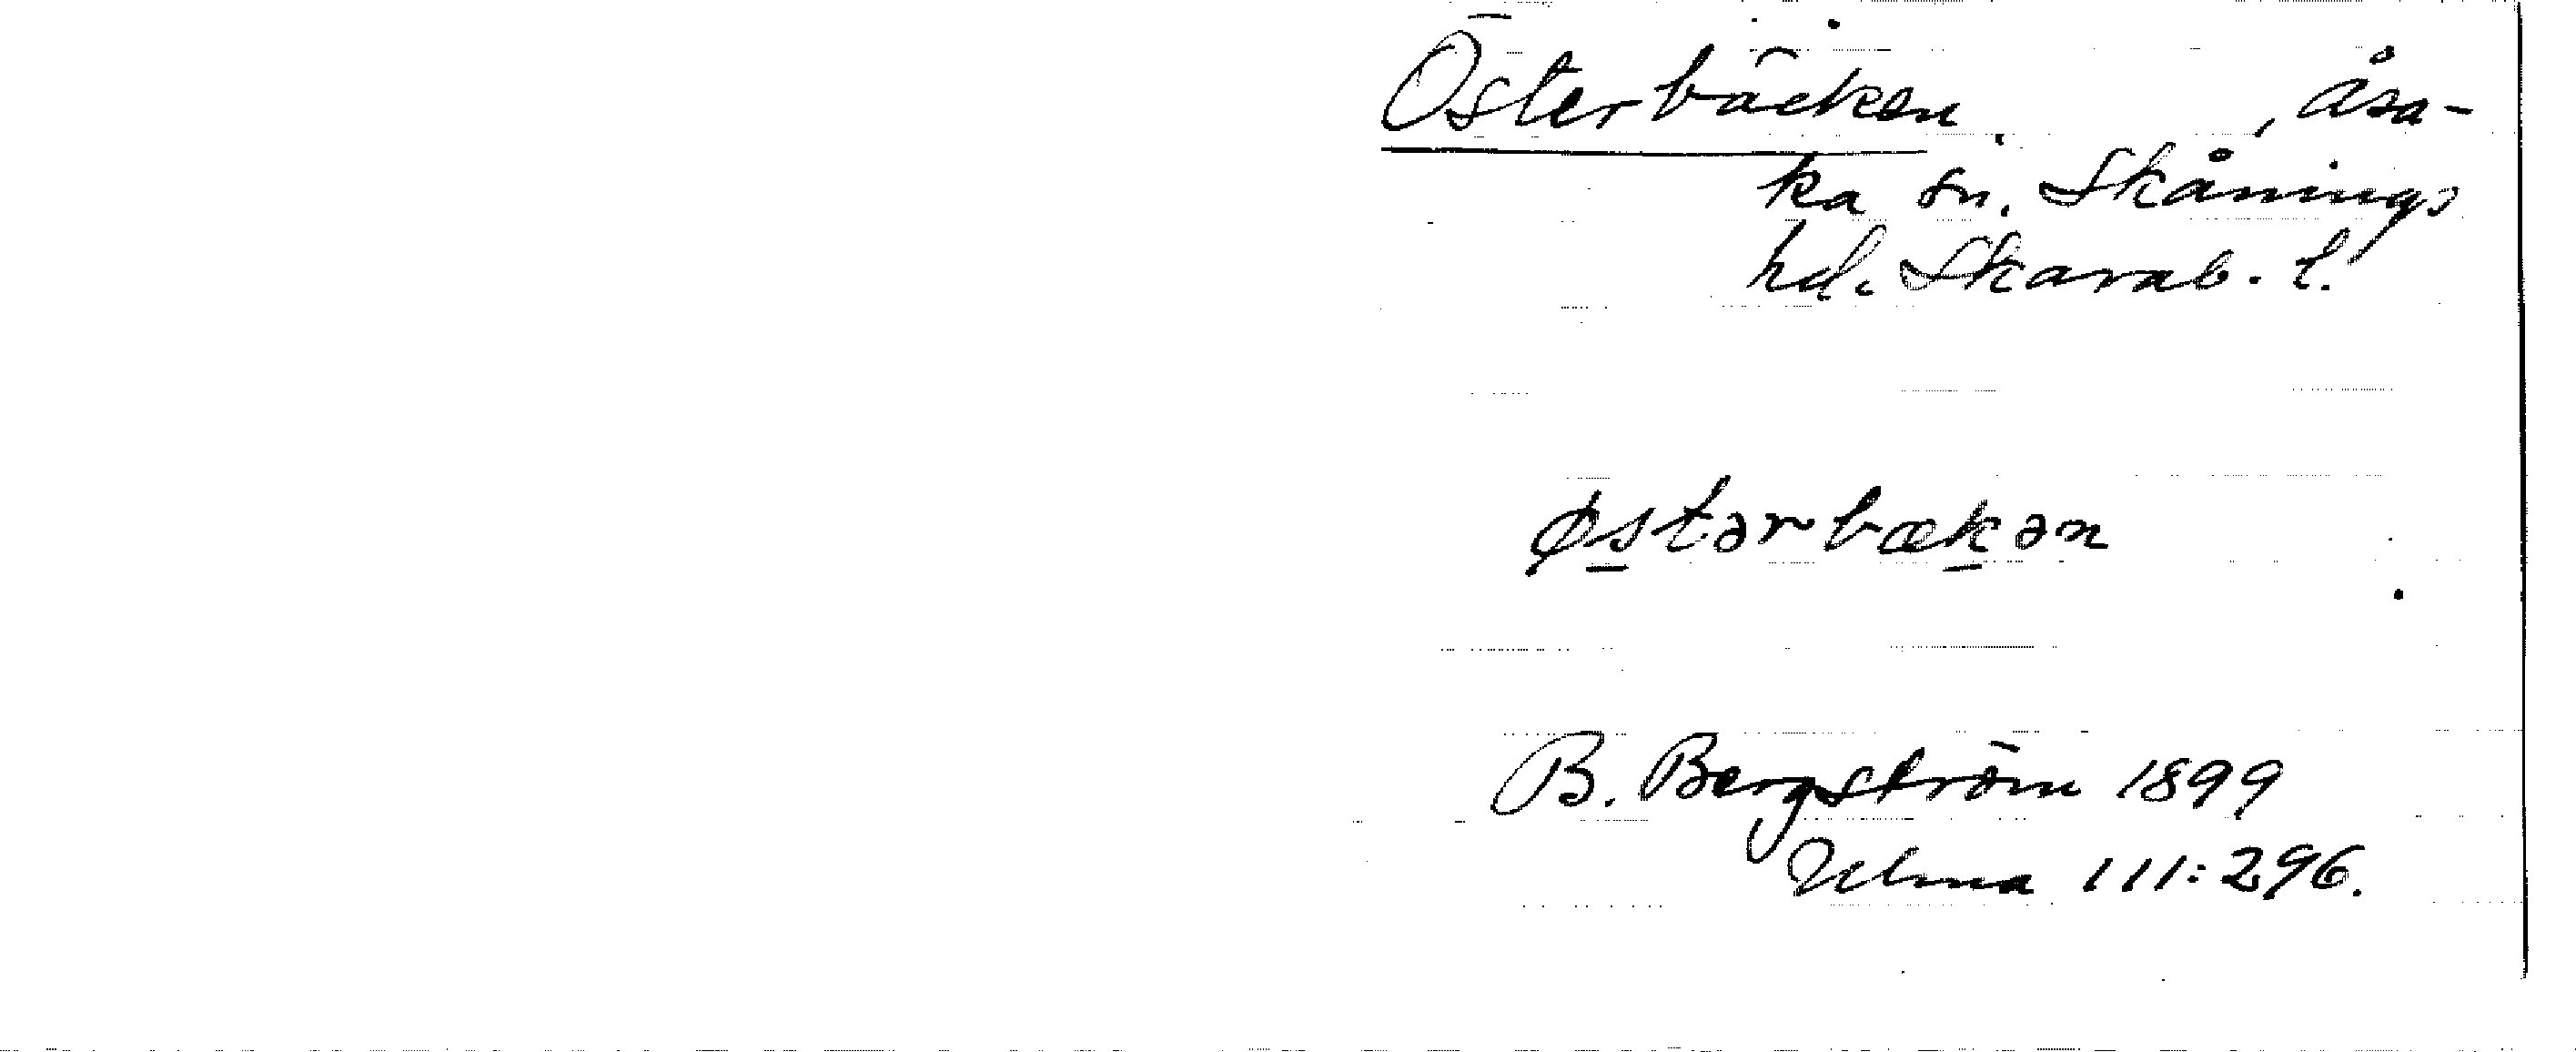 Österbäcken , Åsa-
ka sn. Skånings
hd. Skarab. l.
østərbækən
B. Bergström 1899
Ulma 111:296.